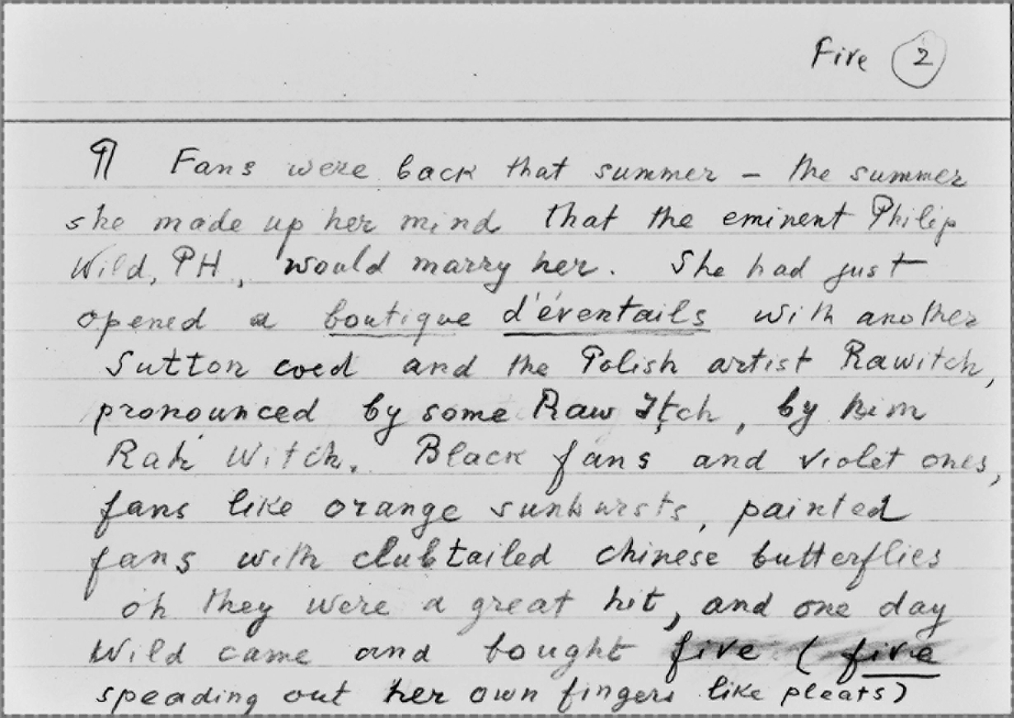 Five 2
¶ Fans were back that summer – the summer
she made up her mind that the eminent Philip
Wild, PH, would marry her. She had just
opened a boutique d'éventails with another
Sutton coed and the Polish artist Rawitch,
pronounced by some Raw Itch, by him
Rah Witch. Black fans and violet ones,
fans like orange sunbursts, painted
fans with clubtailed chinese butterflies
oh they were a great hit, and one day
Wild came and bought five (five
speading out her own fingers like pleats)